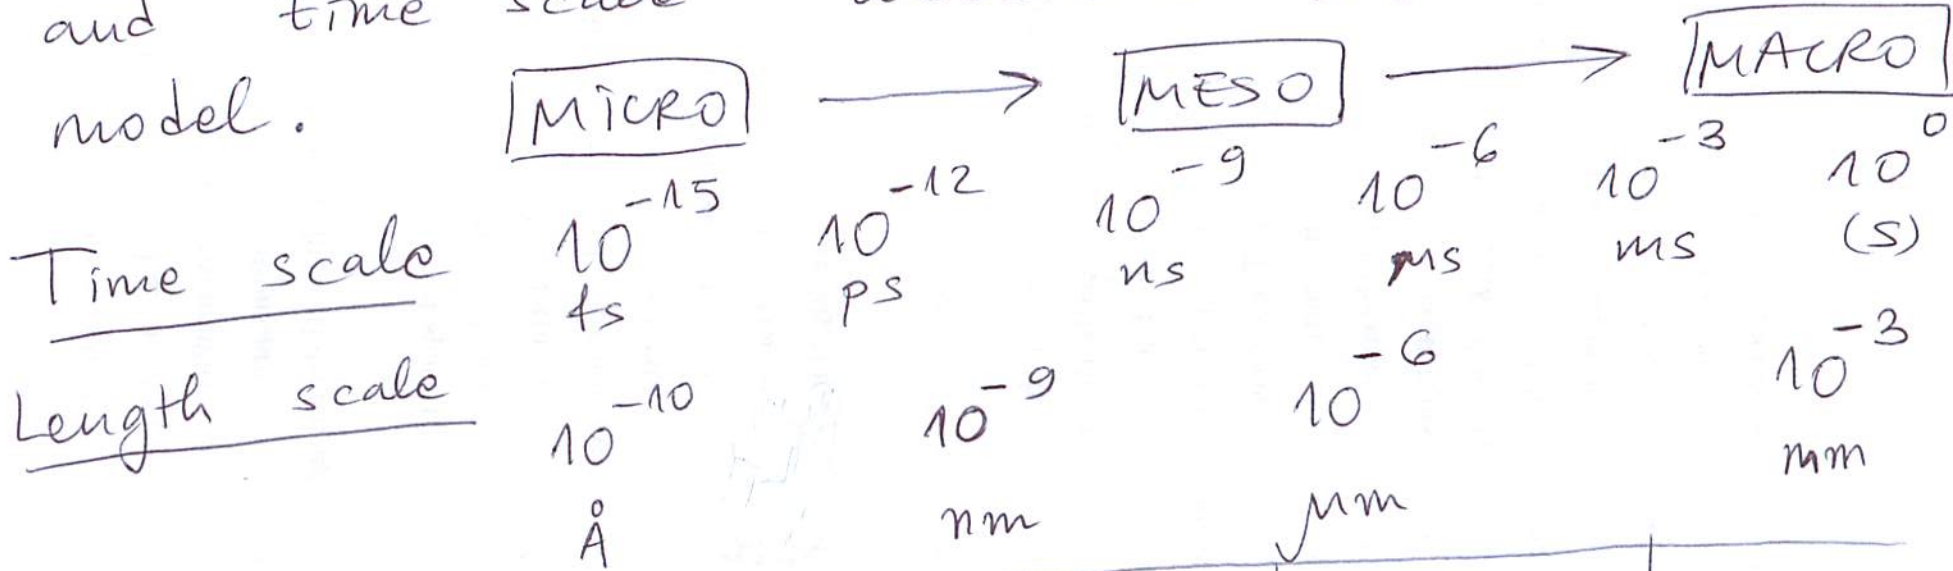 and time scale
model. MiCRO → MESO → MACRO
Time scale 10^-15 10^-12 10^-9 10^-6 10^-3 10^0
fs ps ns μs ms (s)
Length scale 10^-10 10^-9 10^-6 10^-3
Å nm μm mm